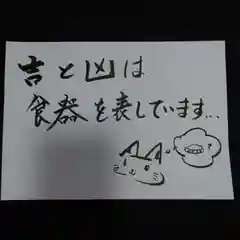 吉と凶は
食器を表しています...